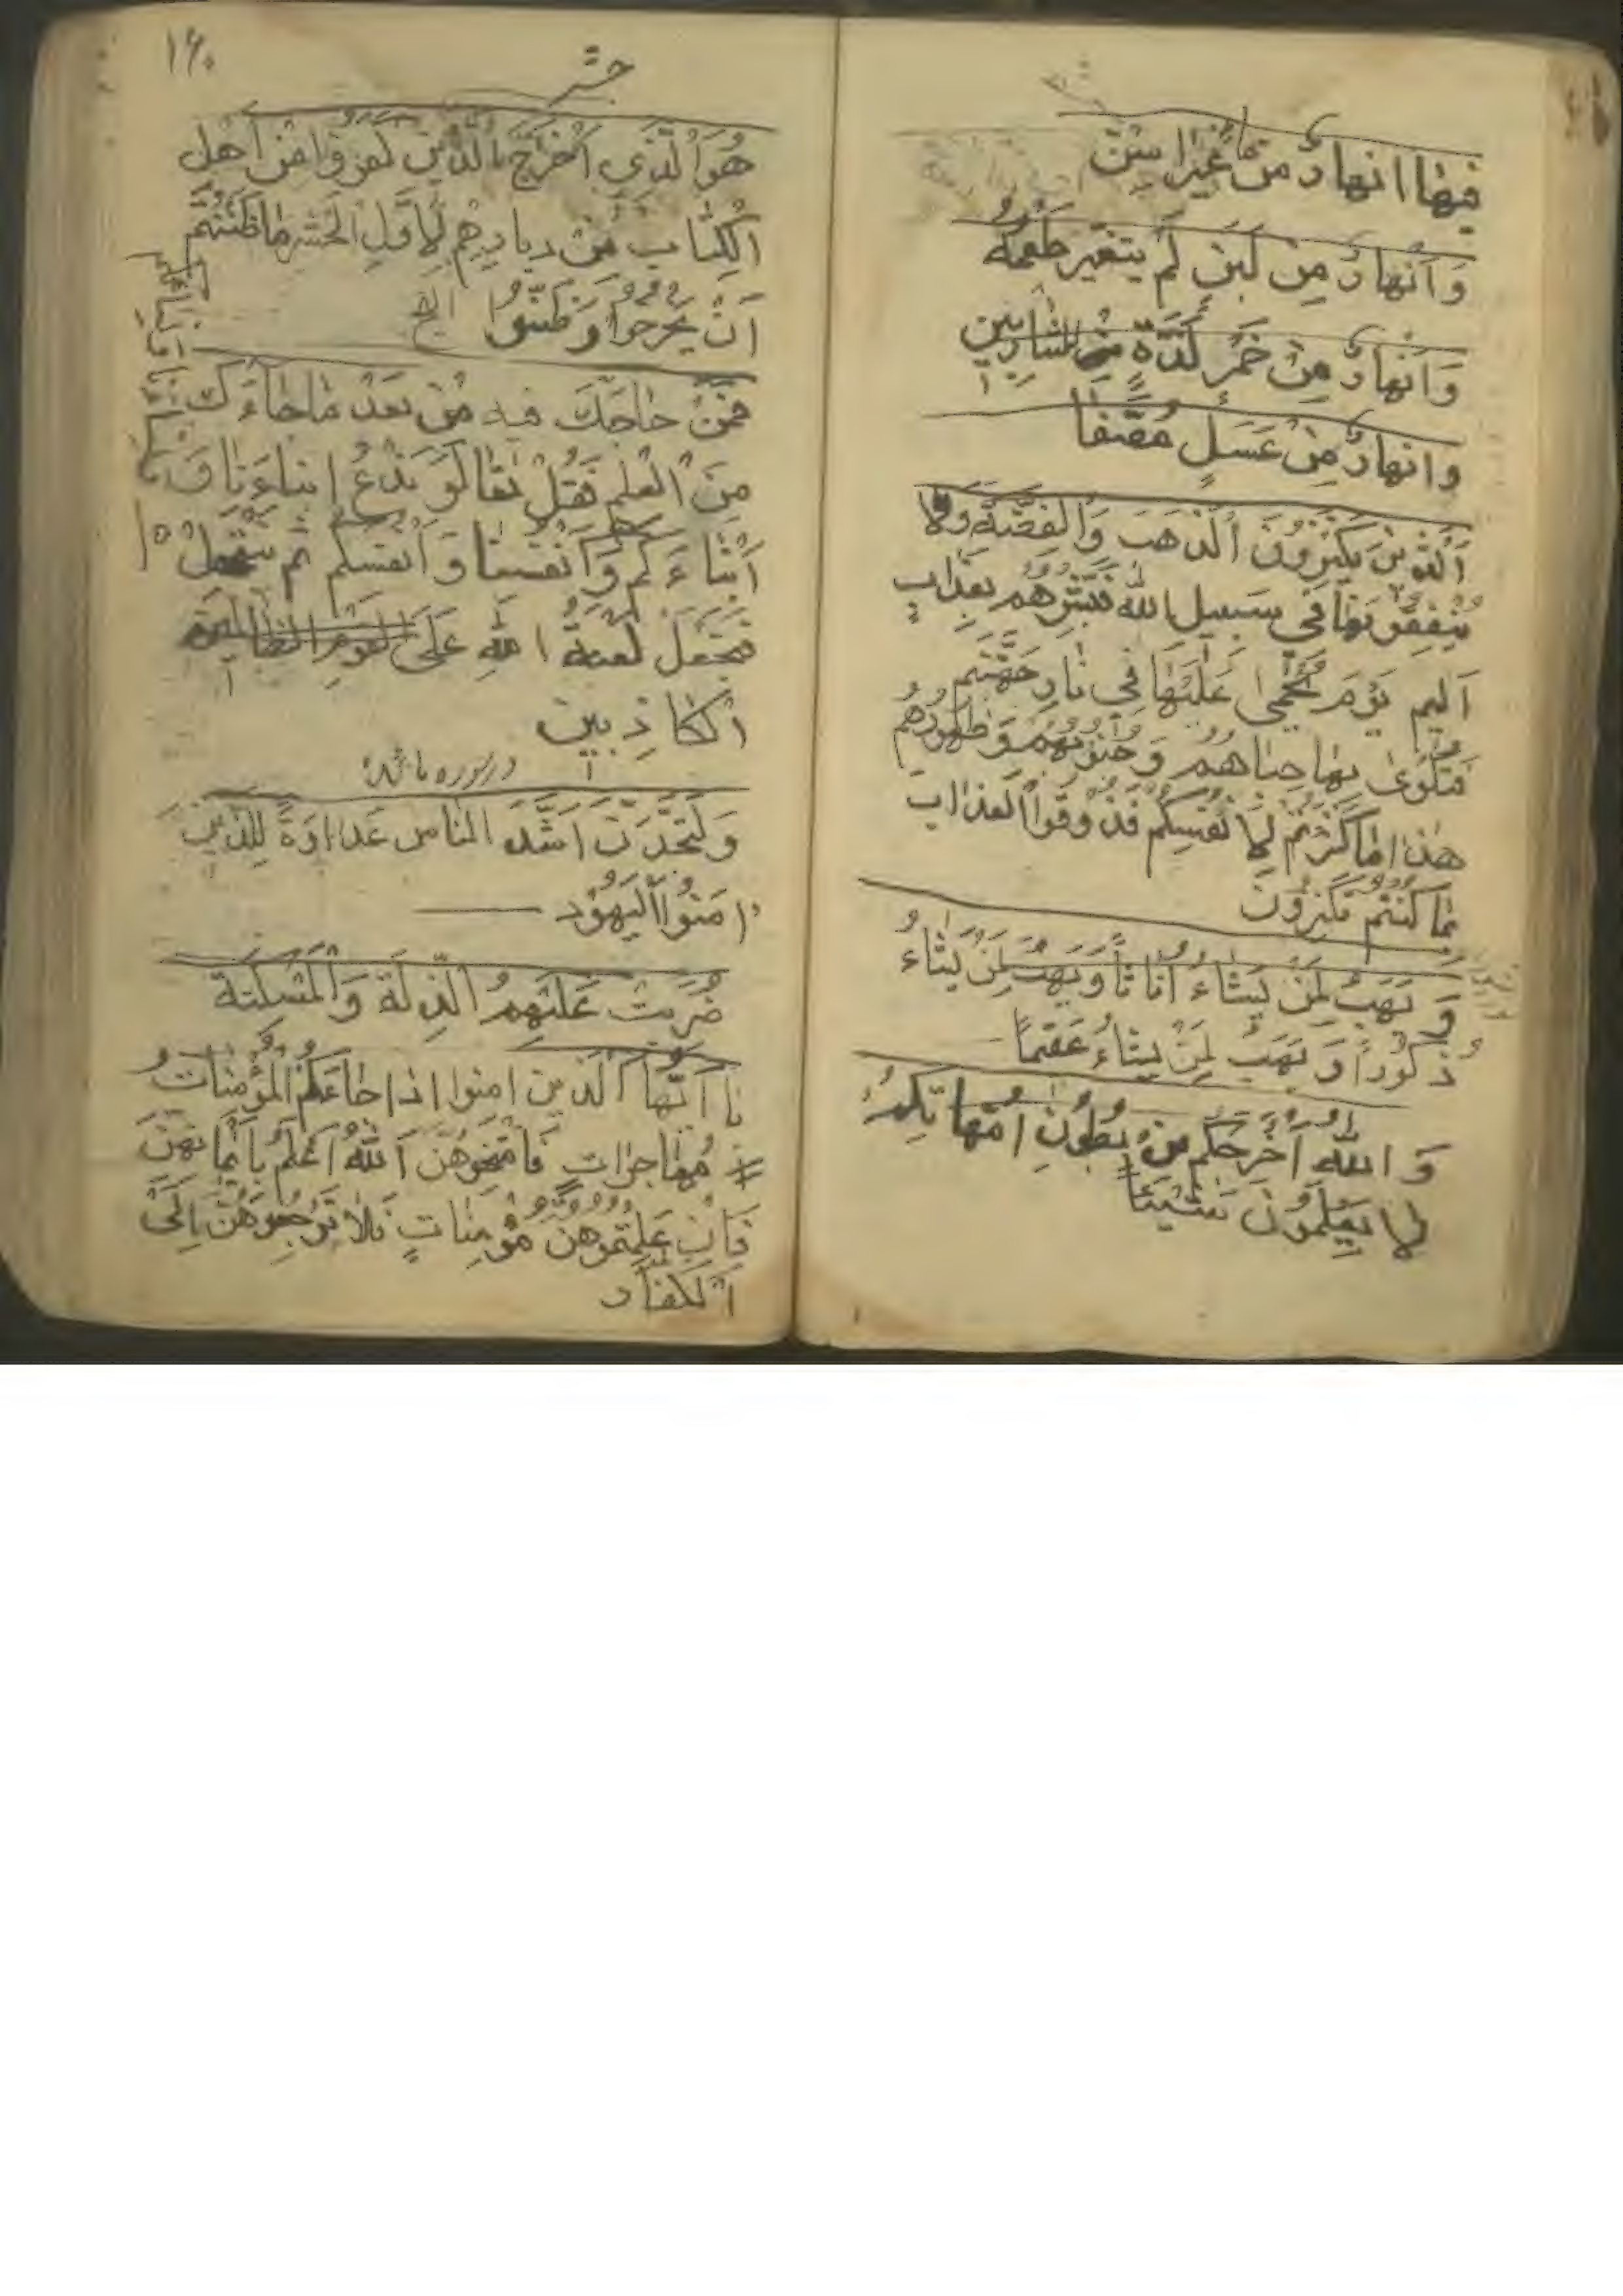 فيها انهارٌ من ماءٍ غير اسِنٍ
وَ اَنهارٌ مِن لَبَنٍ لَم يتغيّر طَعمُهُ
وَ اَنهارٌ مِن خَمرٍ لَذّةٍ للشاربين
وانهارٌ مِن عَسَلٍ مُصَّفا
اَلّذينَ يَكنِزونَ الذهَبَ وَالفِضّةَ وَلا
يُنفِقونَها في سبيل الله فَبَشِّرهُم بعَذابٍ
اَليم يَومَ يُحمیٰ عَلَيها فِي نارِ جَهَنَّم
فتُكویٰ بها جباهُهُم وَ جُنوبُهُم وَ ظُهورُهُم
هٰذا ما كَنَزتُم لِاَنفُسِكُم فَذُوقُوا العذابَ
بما كُنتُم تكنزُون
وَ يَهَبُ لِمَن يَشاءُ اناثاً وَيَهَبُ لِمَن يَشاءُ
ذُكُوراً وَ يَهَبُ لِمَن يشاءُ عَقيماً
وَ اللهُ اَخرَجَكُم مِن بُطُونِ اُمّهاتِكُم
لا يَعلَمُونَ شَيئاً
۱۶۰
حشر
هُوَ الّذي اَخرَجَ الّذين كَفَروُا مِن اَهل
الكِتابِ مِن ديارِهِم لِاَوَّلِ الحَشرِ ما ظَنَنتُم
اَن يَخرُجوا وَ ظَنّوا الخ
فمَن حاجّكَ فيه مِن بَعدِ ما جاءَكَ
مِنَ العلم فَقُل تَعالَوا نَدعُ ابناءَنا وَ
اَبناءَكُم وَ اَنفُسَنا وَ اَنفُسَكُم ثم نبتهل
فنجعَل لَعنةَ اللهِ عَلَى القوم الظالمين
الكاذبين
در سوره مائده
وَ لَتَجِدَنَّ اَشَدَّ الناسِ عَداوَةً لِلّذين
امَنُوا اليَهُود
ضُرِبَت عَلَيهِمُ الذِلّةُ وَالمَسكَنَة
يا اَيُّها الَّذين امنوا اذا جاءَكُمُ المُؤمِناتُ
مُهاجِراتٍ فَامتَحِنوهُنَّ اَللهُ اَعلَمُ بِايمانِهِنَّ
فَاِن عَلِمتُموهُنَّ مُؤمِناتٍ فَلا تَرجِعوهُنَّ اِلَی
الكفّار